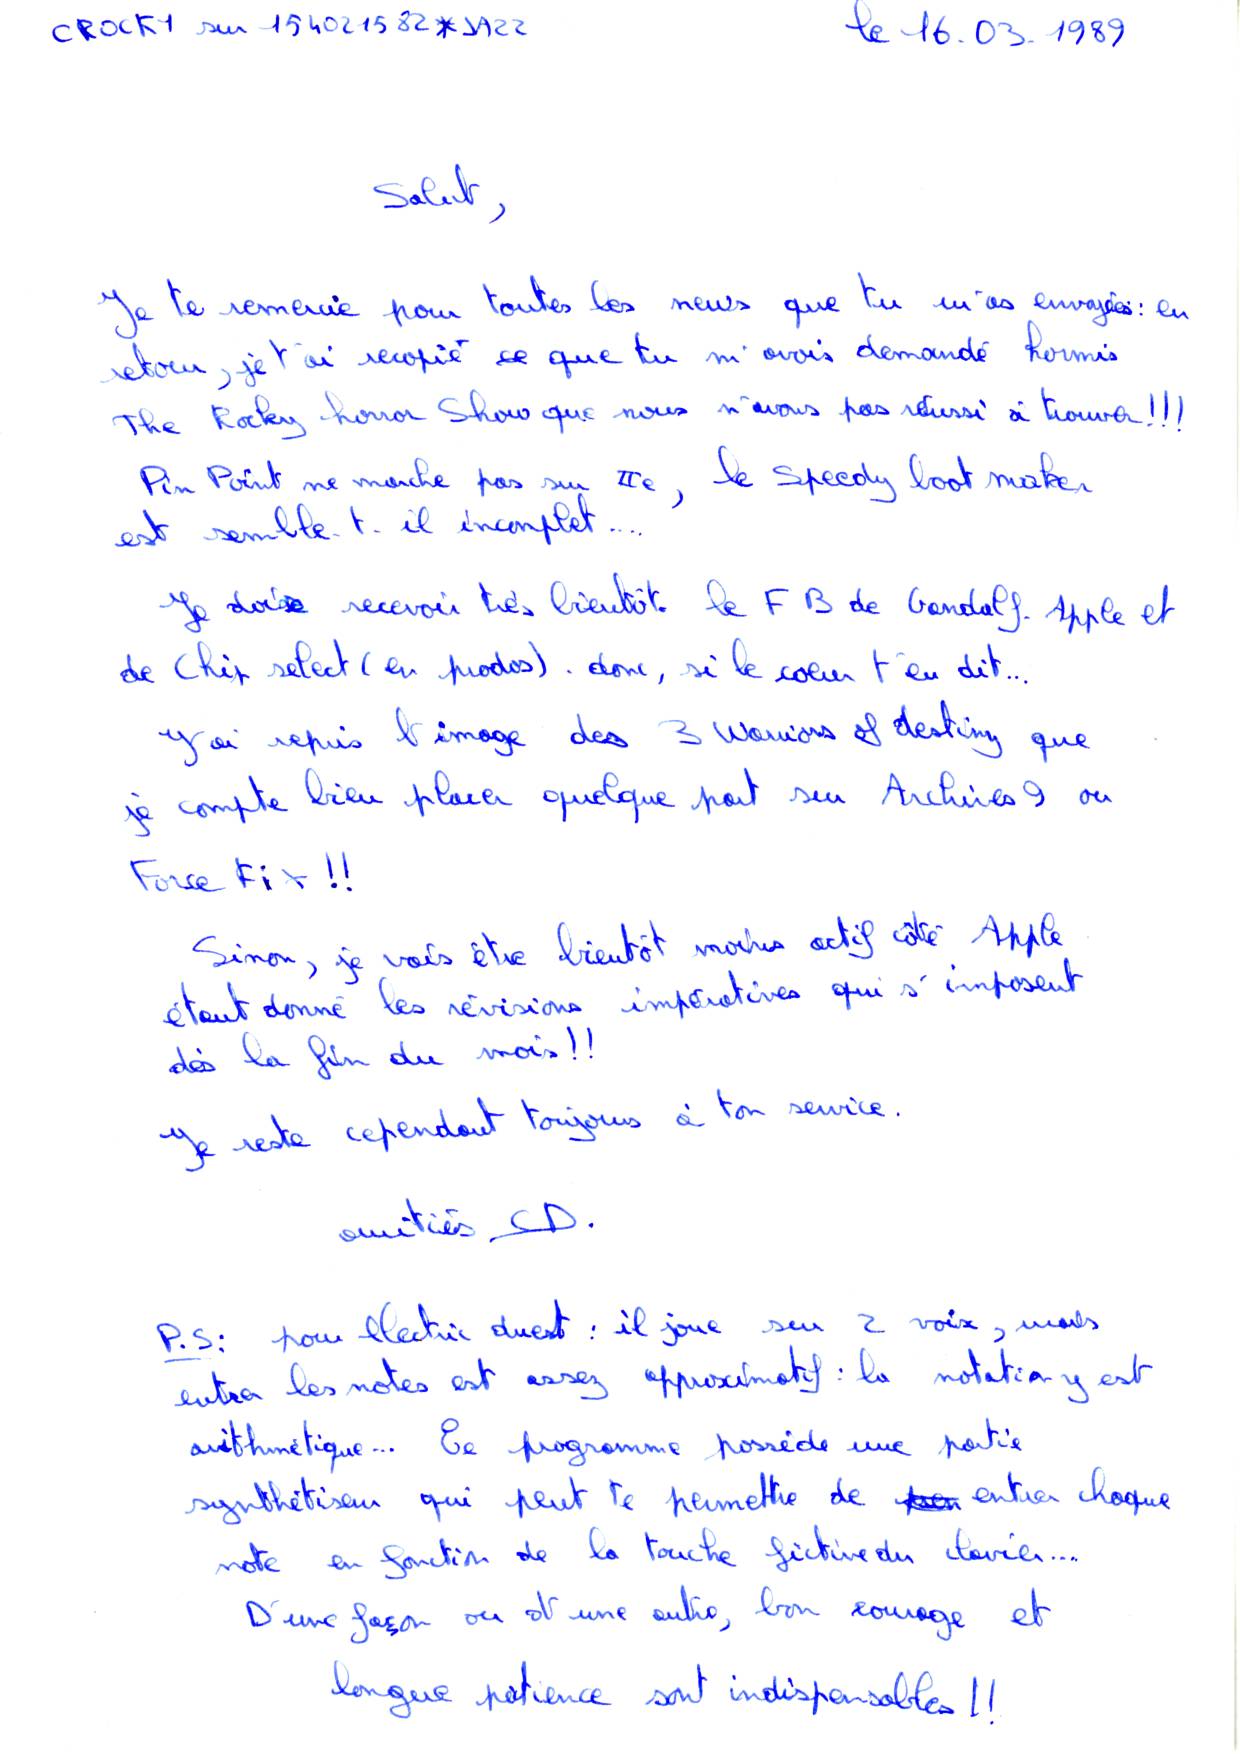 CROCK1 sur 154021582*JAZZ
le 16.03.1989
Salut,
Je te remercie pour toutes les news que tu m'as envoyées: en
retour, je t'ai recopié ce que tu m'avais demandé hormis
The Rocky horror Show que nous n'avons pas réussi à trouver!!!
Pin Point ne marche pas sur IIe, le Speedy boot maker
est semble-t-il incomplet....
Je dois recevoir très bientôt le F B de Gandalf-Apple et
de Chip select (en prodos). donc, si le coeur t'en dit...
J'ai repris l'image des 3 Warriors of destiny que
je compte bien placer quelque part sur Archives 9 ou
Force Fix!!
Sinon, je vais être bientôt moins actif côté Apple
étant donné les révisions impératives qui s'imposent
dès la fin du mois!!
Je reste cependant toujours à ton service.
amitiés CD.
P.S: pour Electric duet: il joue sur 2 voix, mais
entrer les notes est assez approximatif: la notation y est
arithmétique... Ce programme possède une partie
synthétiseur qui peut te permettre de entrer chaque
note en fonction de la touche fictive du clavier....
D'une façon ou d'une autre, bon courage et
longue patience sont indispensables!!